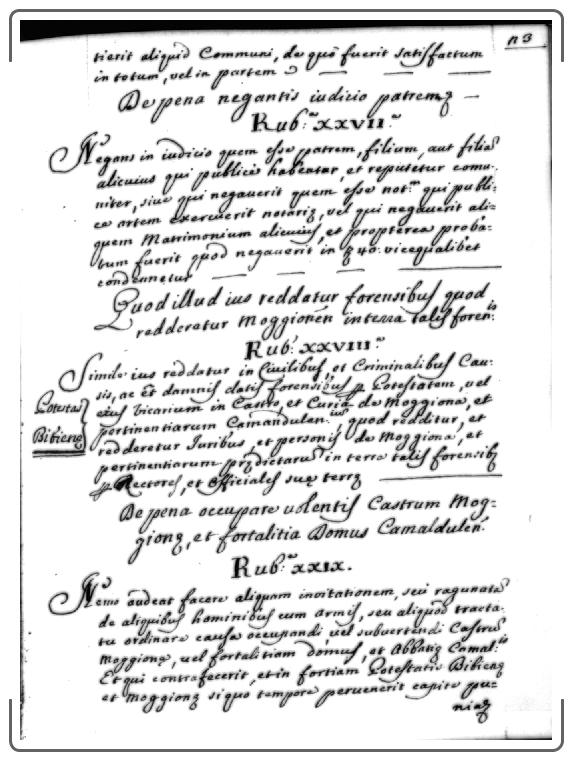 n 3
tierit aliquid Communi, de quo fuerit satisfactum
in totum, vel in partem
De pena negantis iudicio patrem
Rub.ª XXVII.ª
Negans in iudicio quem esse patrem, filium, aut filiā
alicuius qui publicè habeatur, et reputetur comu-
niter, sive qui negaverit quem esse not.m qui publi-
ce artem exercuerit notarię, vel qui negaverit ali-
quem Matrimonium alicuius, et propterea proba-
tum fuerit quod negaverit in ƺ 40. vice qualibet
condennetur
Quod illud ius reddatur forensibus quod
redderetur Moggionen in terra talis foren.is
Rub.ª XXVIII.ª
Simile ius reddatur in Civilibus, et Criminalibus Cau-
sis, ac et damnis datis forensibus ꝑ Potestatem, vel
eius Vicarium in Castro, et Curia de Moggiona, et
pertinentiarum Camandulen.ium, quod redditur, et
redderetur Iuribus, et personis de Moggiona, et
pertinentiarum prędictarū in terra talis forensis
ꝑ Rectores, et Officiales suę terrę
Potestas
Bibienę
De pena occupare volentis Castrum Mog-
gionę, et fortalitia Domus Camaldulen.
Rub.ª XXIX.
Nemo audeat facere aliquam invitationem, seu ragunatā
de aliquibus hominibus cum armis, seu aliquod tracta-
tu ordinare causa occupandi, vel subvertendi Castrū
Moggionę, vel fortalitiam domus, et Abbatię Camal.is
Et qui contrafecerit, et in fortiam Potestatis Bibienę
et Moggionę si quo tempore pervenerit capite pu-
niaę